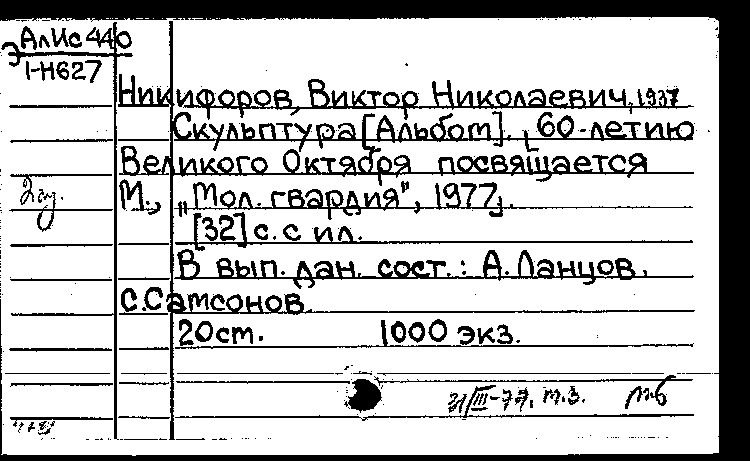 Э АлИс 440
1-Н627
Никифоров, Виктор Николаевич, 1937
Скульптура [Альбом]. [60-летию
Великого Октября посвящается
М., „Мол. гвардия", 1977].
[32] с. с ил.
В вып. дан. сост.: А. Ланцов,
С. Самсонов.
20 см. 1000 экз.
2 эк.
31/III-77. т.з. м.б